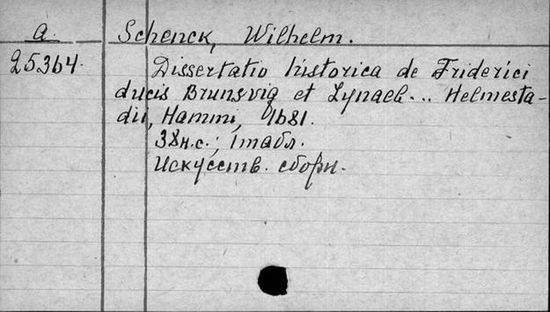 a
25364
Schenck, Wilhelm.
Dissertatio historica de Friderici
ducis Brunsvig et Lynaeb... Helmesta-
dii, Hammi, 1681.
38н.с.; 1табл.
Искусств. сборн.